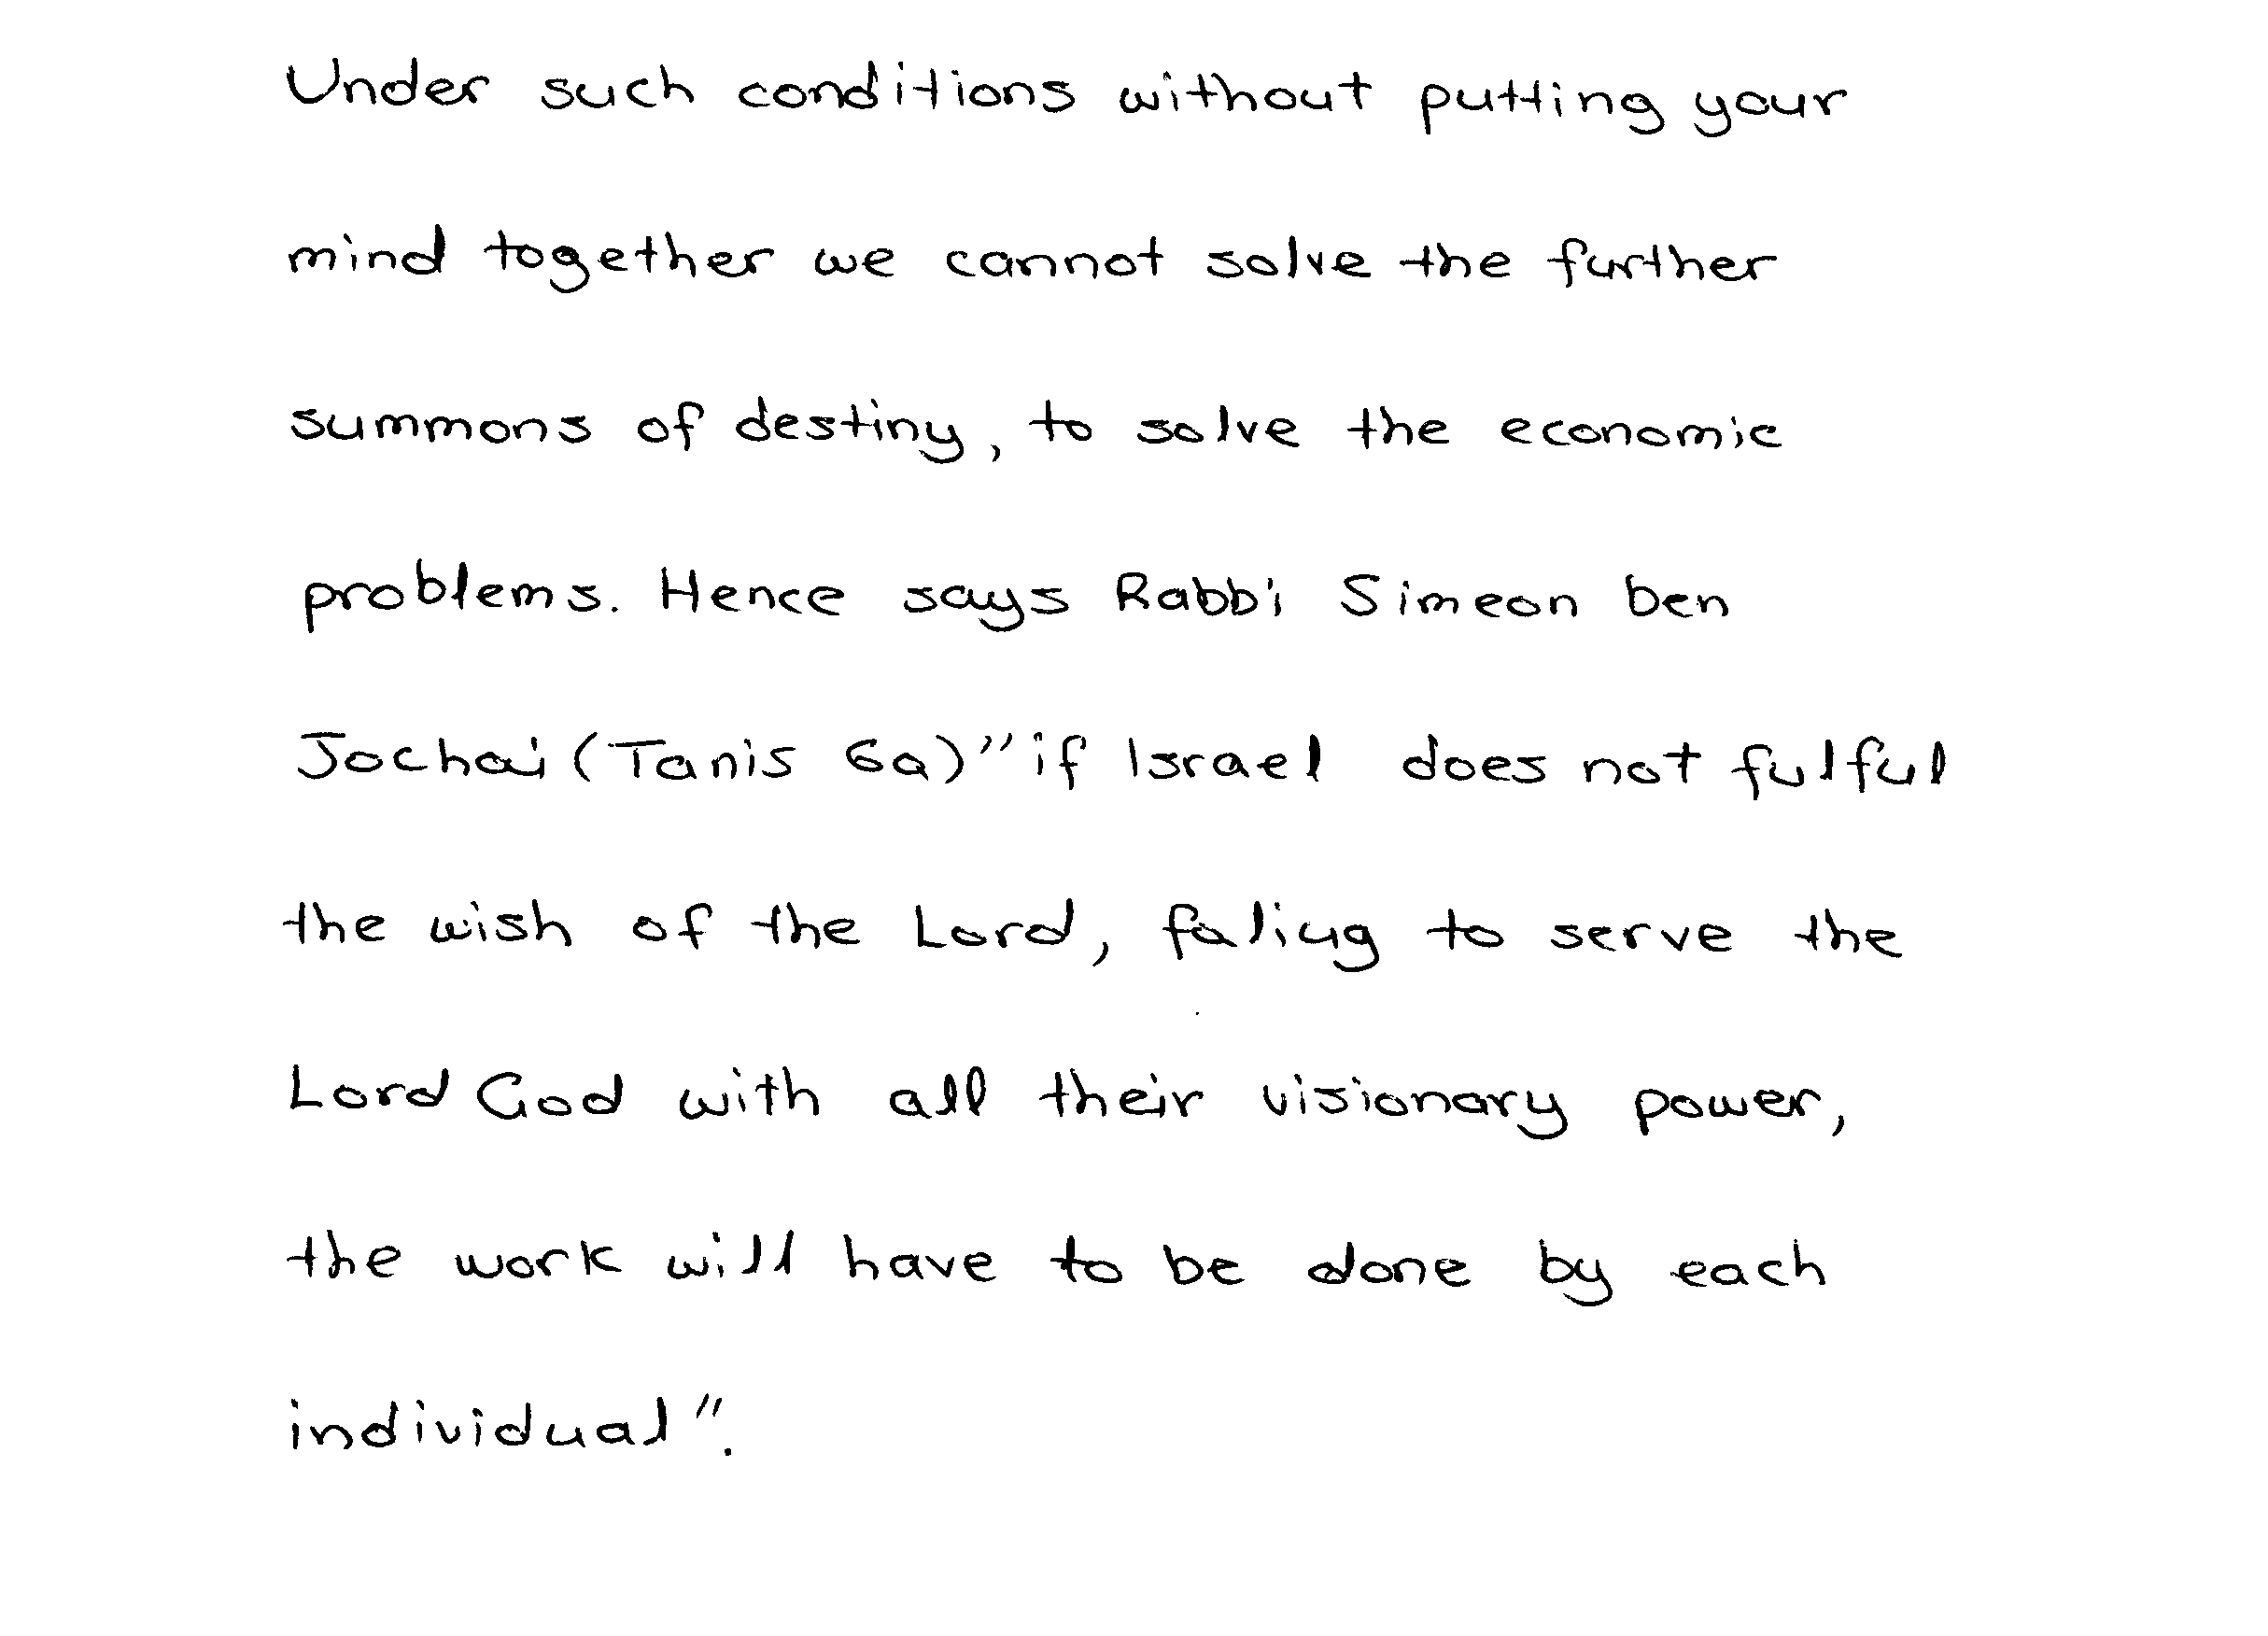 Under such conditions without putting your
mind together we cannot solve the further
summons of destiny, to solve the economic
problems. Hence says Rabbi Simeon ben
Jochai (Tanis 6a) "if Israel does not fulful
the wish of the Lord, faling to serve the
Lord God with all their visionary power,
the work will have to be done by each
individual".